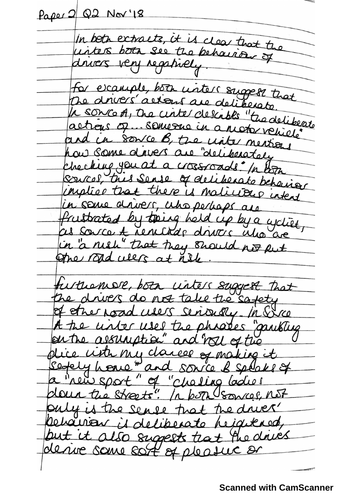 Paper 2 Q2 Nov '18
In both extracts, it is clear that the
writers both see the behaviour of
drivers very negatively.
For example, both writers suggest that
the drivers' actions are deliberate.
In source A, the writer describes "the deliberate
actions of... someone in a motor vehicle"
and in source B, the writer mentions
how some drivers are "deliberately
checking you at a crossroads." In both
sources, this sense of deliberate behaviour
implies that there is malicious intent
in some drivers, who perhaps are
frustrated by being held up by a cyclist,
as source A reminds drivers who are
in "a rush" that they should not put
other road users at risk.
Furthermore, both writers suggest that
the drivers do not take the safety
of other road users seriously. In source
A the writer uses the phrases "gambling
on the assumption" and "roll of the
dice with my chances of making it
safely home" and source B speaks of
a "new sport" of "chasing ladies
down the streets". In both sources, not
only is the sense that the drivers'
behaviour is deliberate heightened,
but it also suggests that the drivers
derive some sort of pleasure or
Scanned with CamScanner